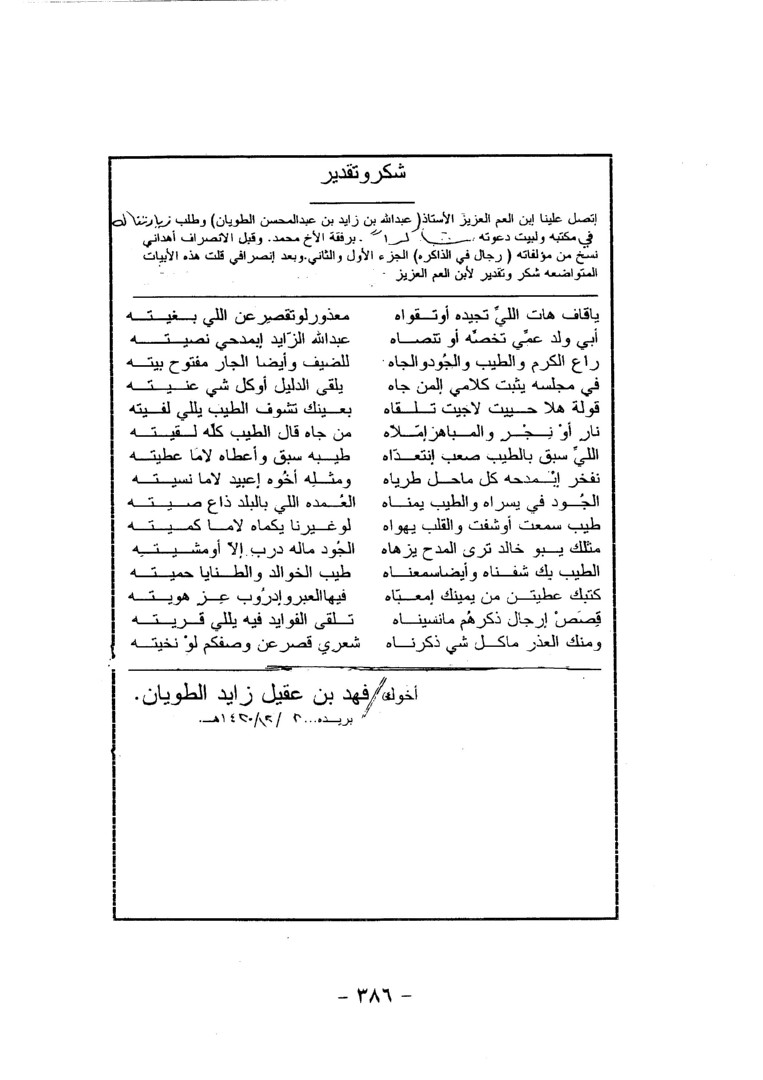 شكر وتقدير
إتصل علينا إبن العم العزيز الأستاذ( عبدالله بن زايد بن عبدالمحسن الطويان) وطلب زيارتنا له
في مكتبه ولبيت دعوته برفقة الأخ محمد. وقبل الانصراف أهداني
نسخ من مؤلفاته ( رجال في الذاكره) الجزء الأول والثاني.وبعد إنصرافي قلت هذه الأبيات
المتواضعه شكر وتقدير لأبن العم العزيز
ياقاف هات الليِّ تجيده أوتـقواه معذور لوتقصير عن اللي بـغيتـه
أبي ولد عمِّي تخصنِّه أو تنصـاه عبدالله الزَّايد إبمدحي نصيتـه
راع الكرم والطيب والجُودوالجاه للضيف وأيضا الجار مفتوح بيتـه
في مجلسه يثبت كلامي إلمن جاه يلقى الدليل أوكل شي عنـيتـه
قولة هلا حـييت لاجيت تـلـقاه بعـينك تشوف الطيب ياللي لفيته
نار أوْ نـجـْر والمـباهر إمّـلاه من جاه قال الطيب كلّه لـقيتـه
الليِّ سبق بالطيب صعب إنتعـدّاه طيـبه سبق وأعطاه لامَا عطيتـه
نفخر إبْـمدحه كل ماحـل طرياه ومثـله أخُوه إعبيد لاما نسيـتـه
الجُـود في يسراه والطيب يمنـاه العُـمده اللي بالبلد ذاع صـيتـه
طيب سمعت أوشفت والقلب يهواه لوغـيرنا يكماه لامـا كمـيتـه
مثلك يـبو خالد ترى المدح يزهاه الجُود ماله درب إلاّ أومشـيتـه
الطيب بك شفـناه وأيضاسمعنـاه طيب الخوالد والطـنايا حميتـه
كتبك عطيتـن من يمينك إمعـبّاه فيهاالعبر وإدرُوب عـز هويتـه
قِصَصْ إرجال ذكرهُم مانسينـاه تـلقى الفوايد فيه ياللي قـريتـه
ومنك العذر ماكـل شي ذكرنـاه شعري قصر عن وصفكم لوْ نخيتـه
أخوك/ فهد بن عقيل زايد الطويان.
- ٣٨٦ -